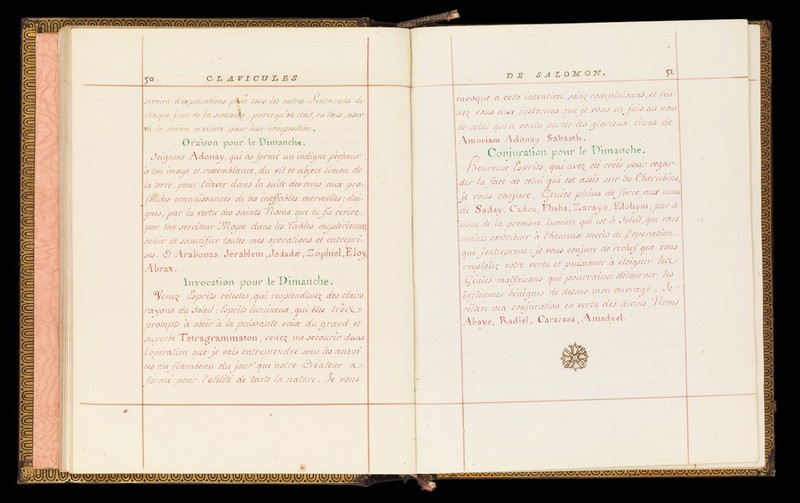 50 CLAVICULES
servira d'explications pour tous les autres Pentacules de
chaque jour de la semaine, parce qu'on doit, en tous, user
de la même maniere pour leur composition.
Oraison pour le Dimanche.
Seigneur Adonay, qui as formé un indigne pécheur
à ton image et ressemblance, du vil et abject limon de
la terre, pour l'élever dans la suite des tems aux pro-
fondes connaissances de tes ineffables merveilles; dai-
gnes, par la vertu des saints Noms que tu fis ecrire
par ton serviteur Moyse dans les Tables mysterieuses,
benir et sanctifier toutes mes operations et entrepri-
ses. O Arabonas, Jerablem, Jodadæ, Zophiel, Eloy,
Abrax.
Invocation pour le Dimanche.
Venez Esprits celestes, qui resplendissez des clairs
rayons du Soleil; Esprits lumineux, qui êtes très
prompts à obéir à la puissante voix du grand et
superbe Tetragrammaton, venez me secourir dans
l'opération que je vais entreprendre sous les auspi-
ces du flambeau du jour que notre Créateur a
formé pour l'utilité de toute la nature. Je vous
DE SALOMON. 51
invoque à cette intention, soiez complaisans, et ren-
dez vous aux instances que je vous en fais au nom
de celui qui a voulu porter les glorieux titres de
Amoriam Adonay Sabaoth.
Conjuration pour le Dimanche.
Heureux Esprits, qui avez été créés pour regar-
der la face de celui qui est assis sur les Cherubins,
je vous conjure, Génies pleins de force, aux noms
de Saday, Cados, Phaha, Zaraye, Elohym, par le
nom de la premiere lumiere qui est le Soleil, que vous
veniez contribuer à l'heureux succès de l'operation
que j'entreprens; je vous conjure de rechef que vous
emploiez votre vertu et puissance à éloigner les
Génies malfaisans qui pourraient détourner les
influences bénignes de dessus mon ouvrage. Je
réitère ma conjuration en vertu des divins Noms
Abaye, Radiel, Caracasa, Amadyel.